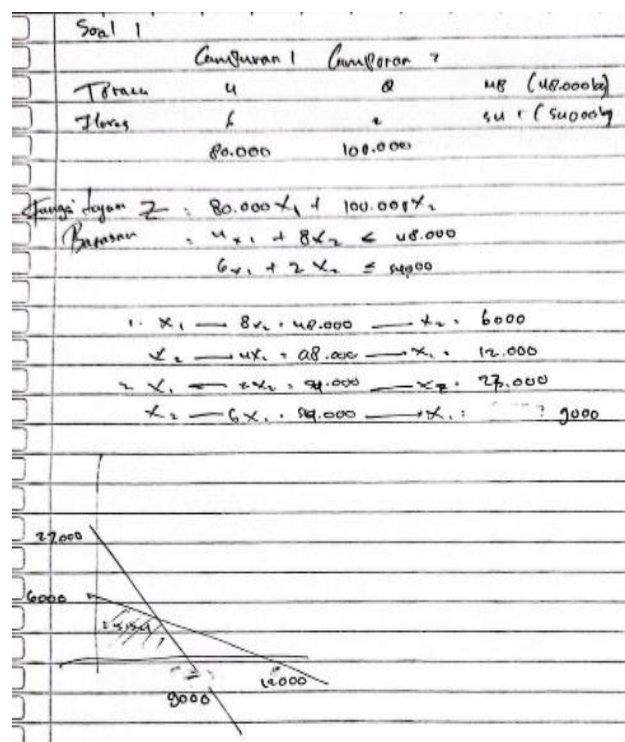 Soal 1
Campuran 1 Campuran 2
Toraja 4 8 48 (48.000kg)
Flores 6 2 54 (54000kg
80.000 100.000
Fungsi tujuan Z = 80.000 X₁ + 100.000 X₂
Batasan = 4x₁ + 8X₂ ≤ 48.000
6x₁ + 2X₂ ≤ 54000
1. X₁ — 8x₂ = 48.000 — X₂ = 6000
X₂ — 4X₁ = 48.000 — X₁ = 12.000
2 X₁ — 2X₂ = 54.000 — X₂ = 27.000
X₂ — 6X₁ = 54.000 — X₁ = 9000
27.000
6000
9000
12000